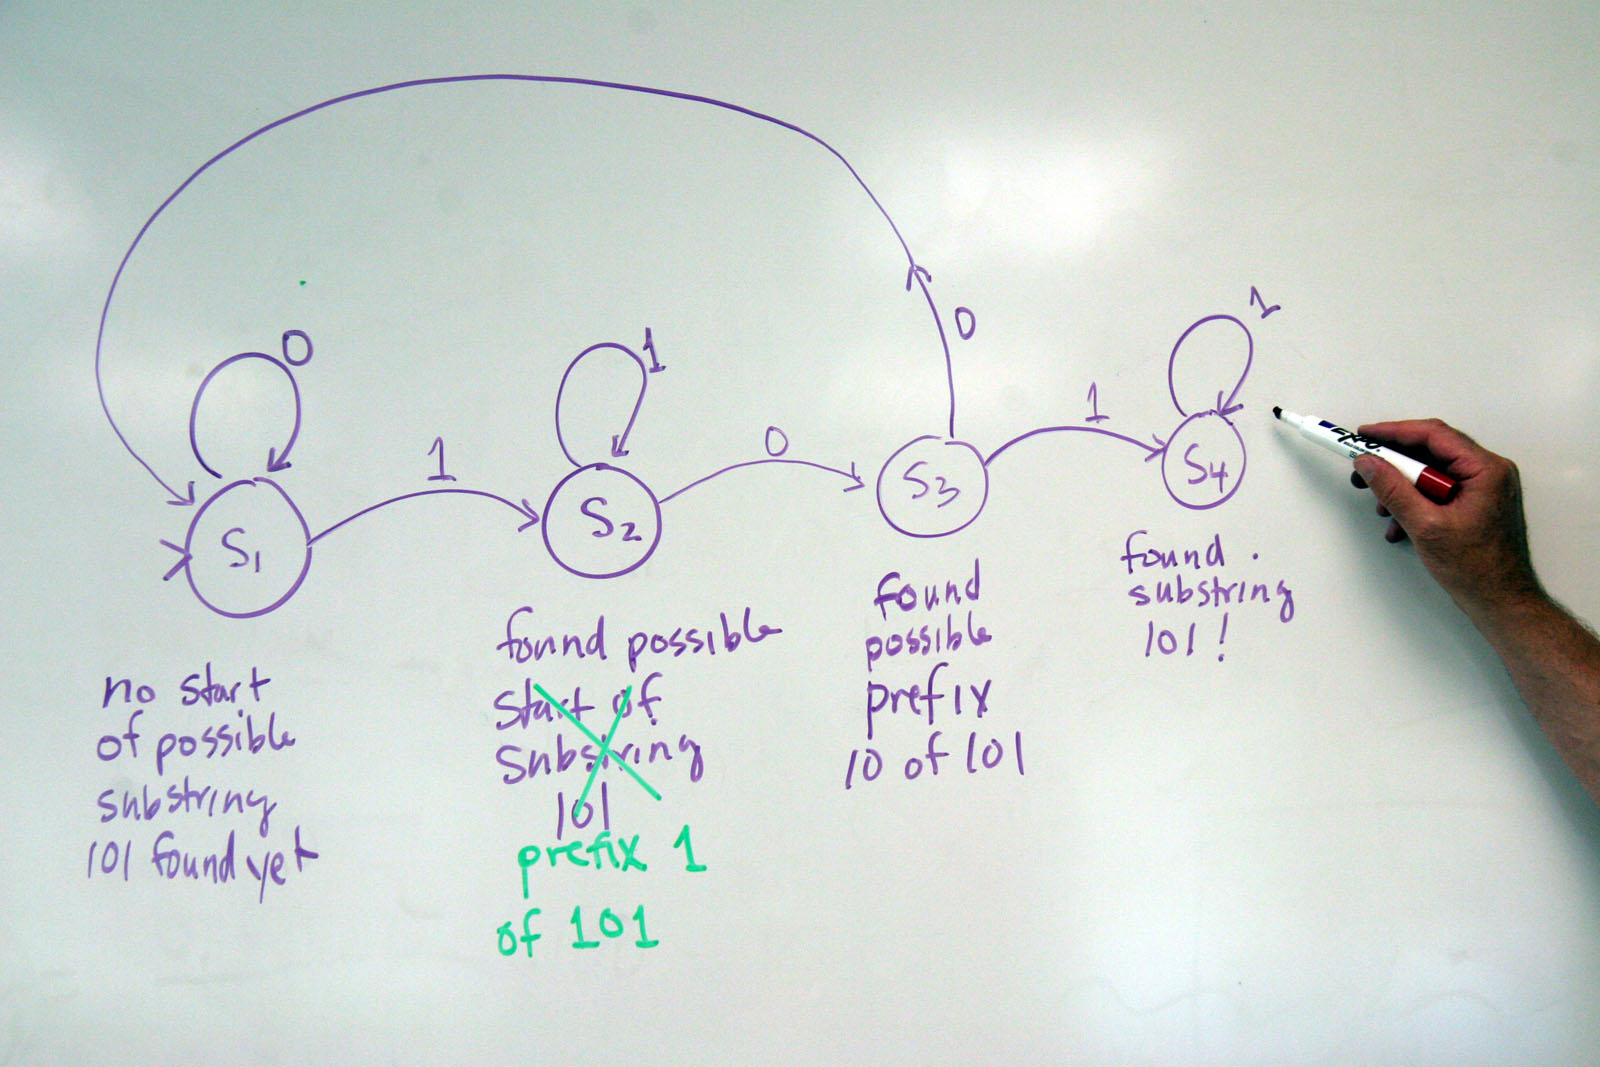 0
1
1
0
0
1
1
S1
S2
S3
S4
no start
of possible
substring
101 found yet
found possible
start of
substring
101
prefix 1
of 101
found
possible
prefix
10 of 101
found
substring
101!
EXPO